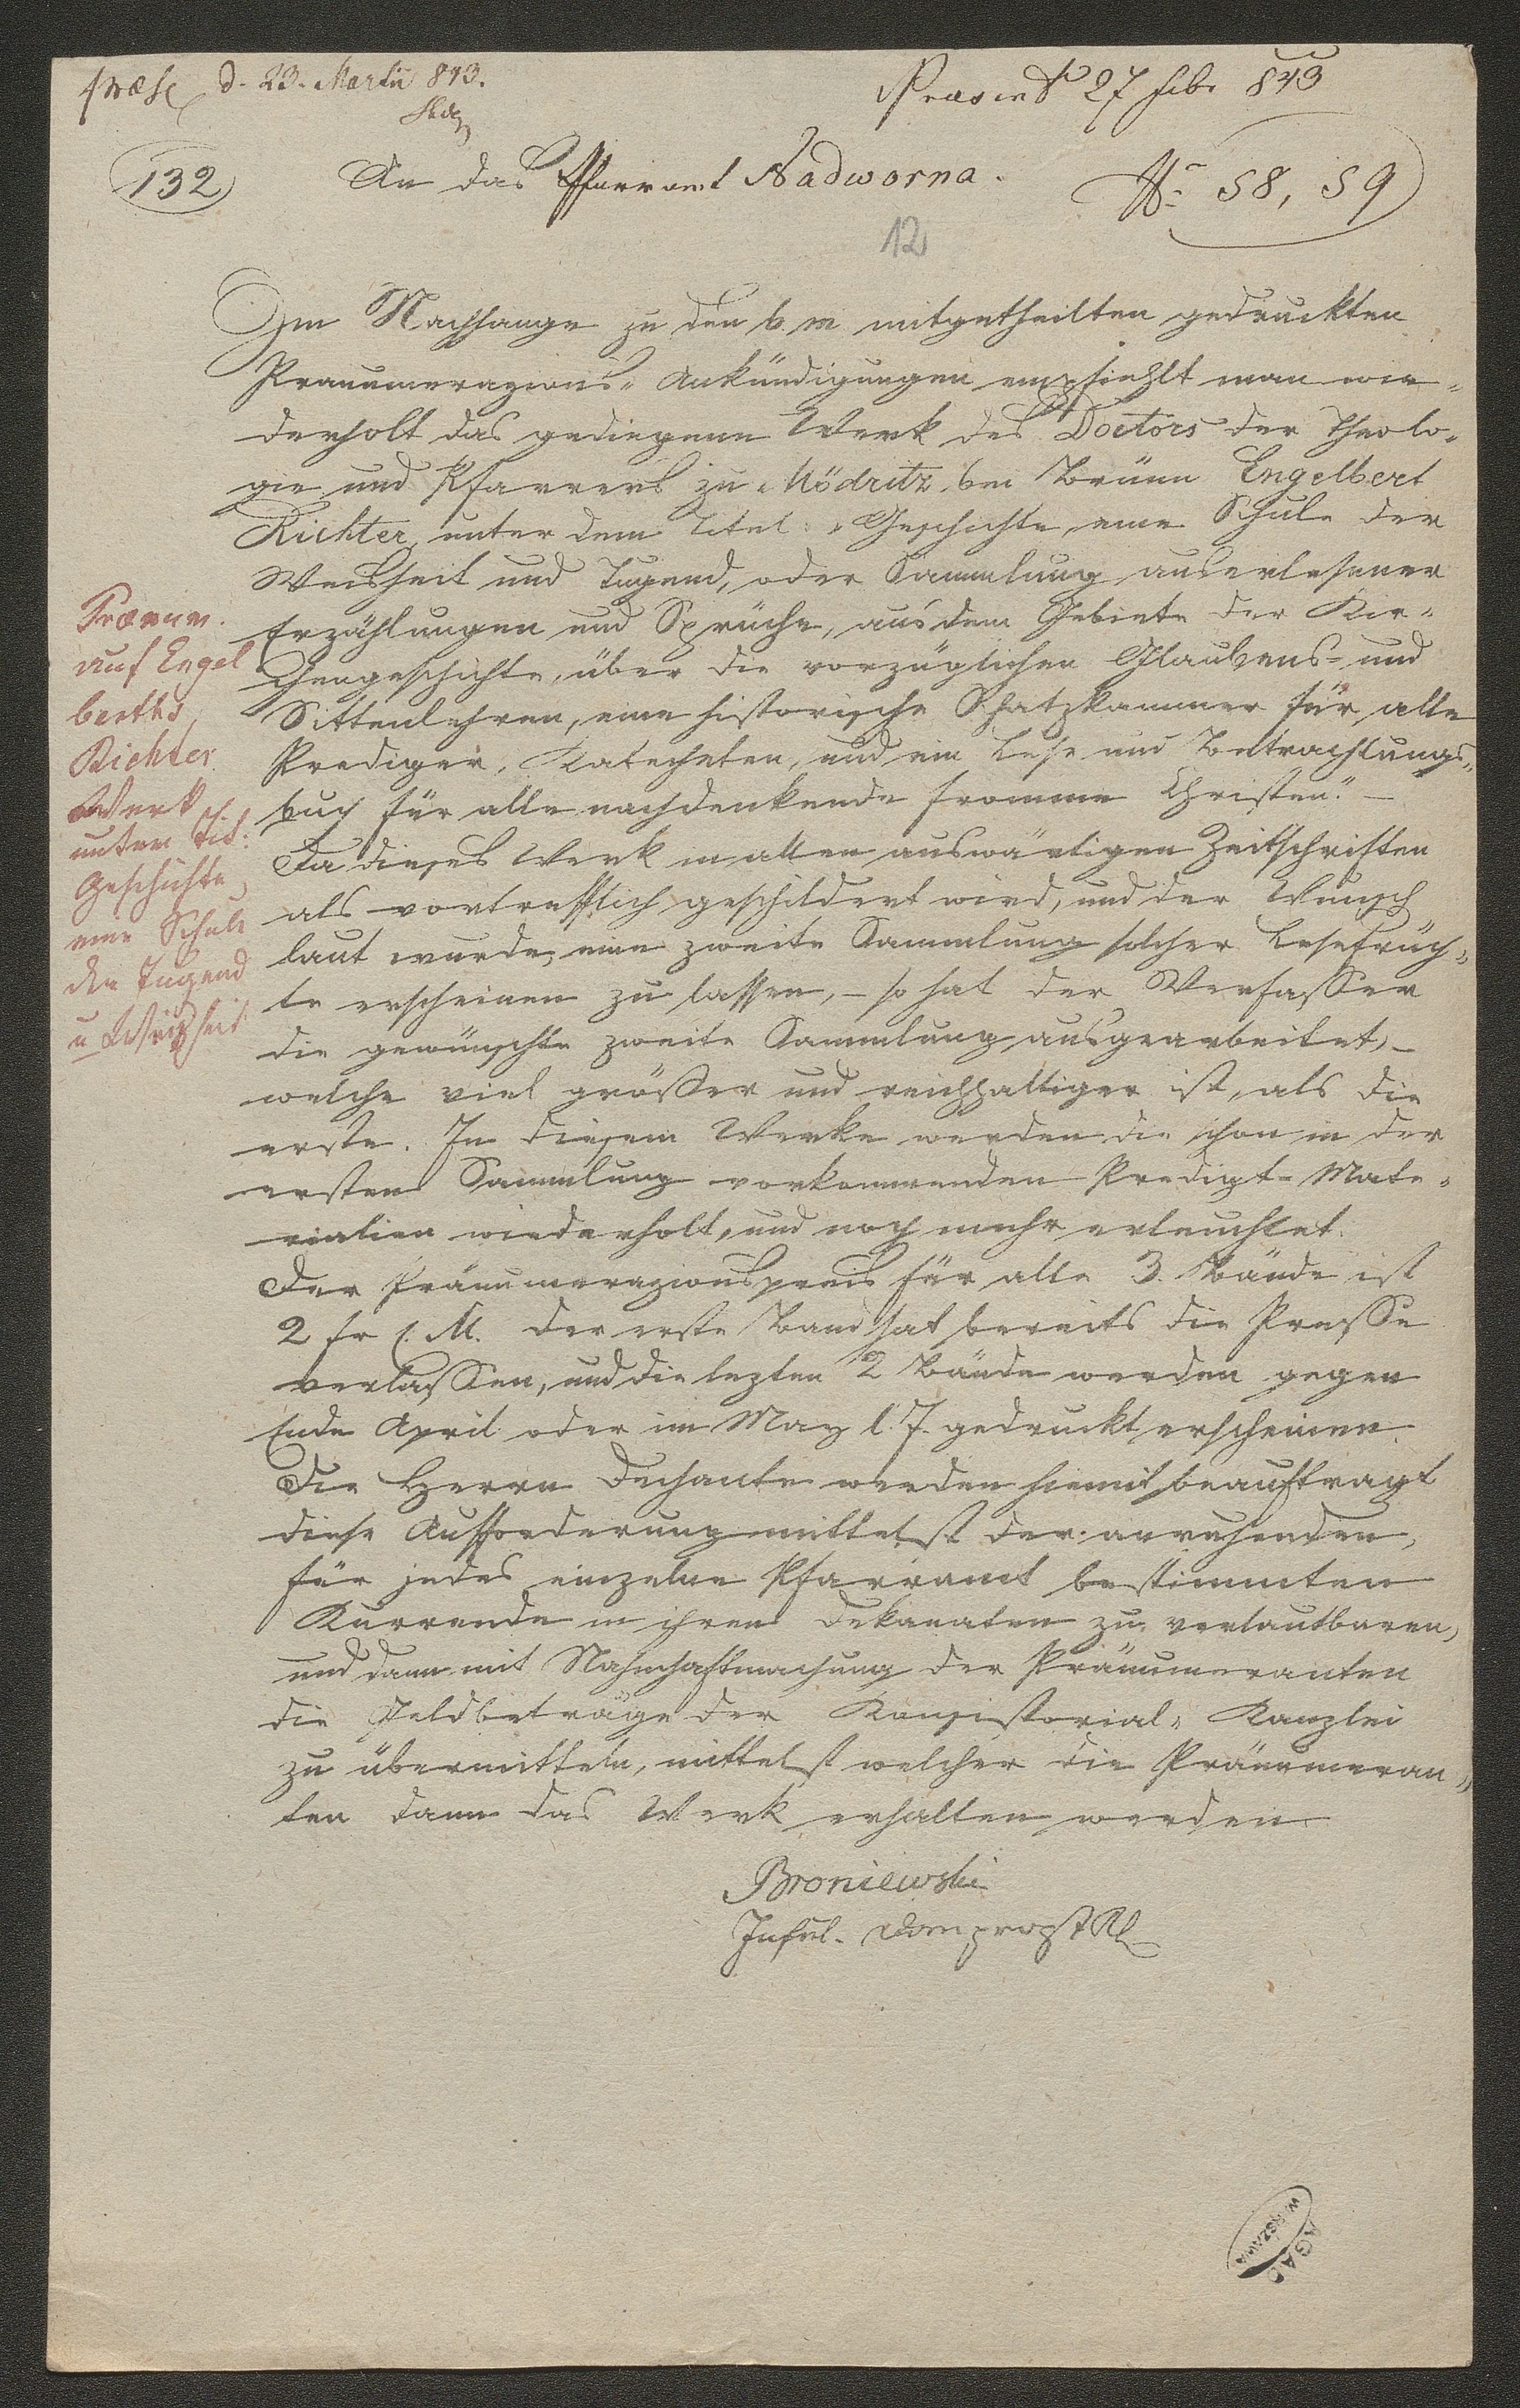 præs d. 23. Martii 843.
Præsent 27 feb. 843
132
An das Pfarramt Nadworna.
No 58, 59
12
Im Nachhange zu den b. m. mitgetheilten gedruckten
Pränumerazions- Ankündigungen empfiehlt man wie-
derholt das gediegene Werk des Doctors der Theolo-
gie und Pfarrers zu Mödritz bei Brünn Engelbert
Richter, unter dem Titel: „Geschichte, eine Schule der
Weisheit und Tugend, oder Sammlung auserlesener
Erzählungen und Sprüche, aus dem Gebiete der Kir-
chengeschichte, über die vorzüglichen Glaubens- und
Sittenlehren, eine historische Schatzkammer für alle
Prediger, Katecheten, und ein Lese und Betrachtungs-
buch für alle nachdenkende fromme Christen." —
Da dieses Werk in allen auswärtigen Zeitschriften
als vortrefflich geschildert wird, und der Wunsch
laut wurde, eine zweite Sammlung solcher Lesefrüch-
te erscheinen zu lassen, – so hat der Verfasser
die gewünschte zweite Sammlung ausgearbeitet, –
welche viel größer und reichhaltiger ist, als die
erste. In diesem Werke werden die schon in der
ersten Sammlung vorkommenden Predigt-Mate-
rialien wiederholt, und noch mehr erleuchtet.
Der Pränumerazionspreis für alle 3. Bände ist
2 fr C. M. Der erste Band hat bereits die Presse
verlassen, und die lezten 2 Bände werden gegen
Ende April oder im May l. J. gedruckt erscheinen.
Die Herrn Dechante werden hiemit beauftragt
diese Aufforderung mittelst der anruhenden,
für jedes einzelne Pfarramt bestimmten
Kurrende in ihren Dekanaten zu verlautbaren,
und dann mit Nahmhaftmachung der Pränumeranten
die Geldbeträge der Konsistorial- Kanzlei
zu übermitteln, mittelst welcher die Pränumeran-
ten dann das Werk erhalten werden.
Broniewski
Inful. Domprobst
Prænum.
auf Engel
berths
Richter
Werk
unter Tit:
Geschichte,
eine Schule
der Tugend
u Weisheit
AGAD
WARSZAWA